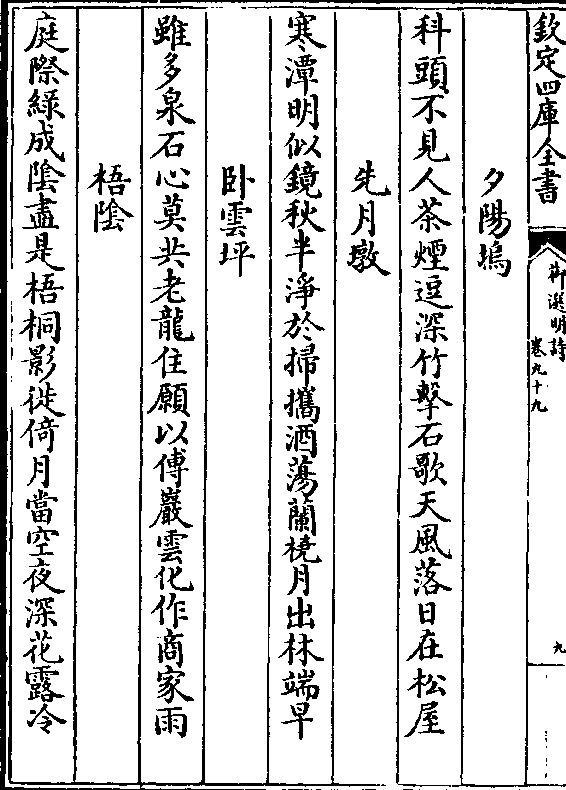 欽定四庫全書
御選明詩
卷九十九
九
夕陽塢
科頭不見人茶煙逗深竹擊石歌天風落日在松屋
先月墩
寒潭明似鏡秋半淨於掃攜酒蕩蘭橈月出林端早
卧雲坪
雖多泉石心莫共老龍住願以傅巖雲化作商家雨
梧隂
庭際綠成隂盡是梧桐影徙倚月當空夜深花露冷